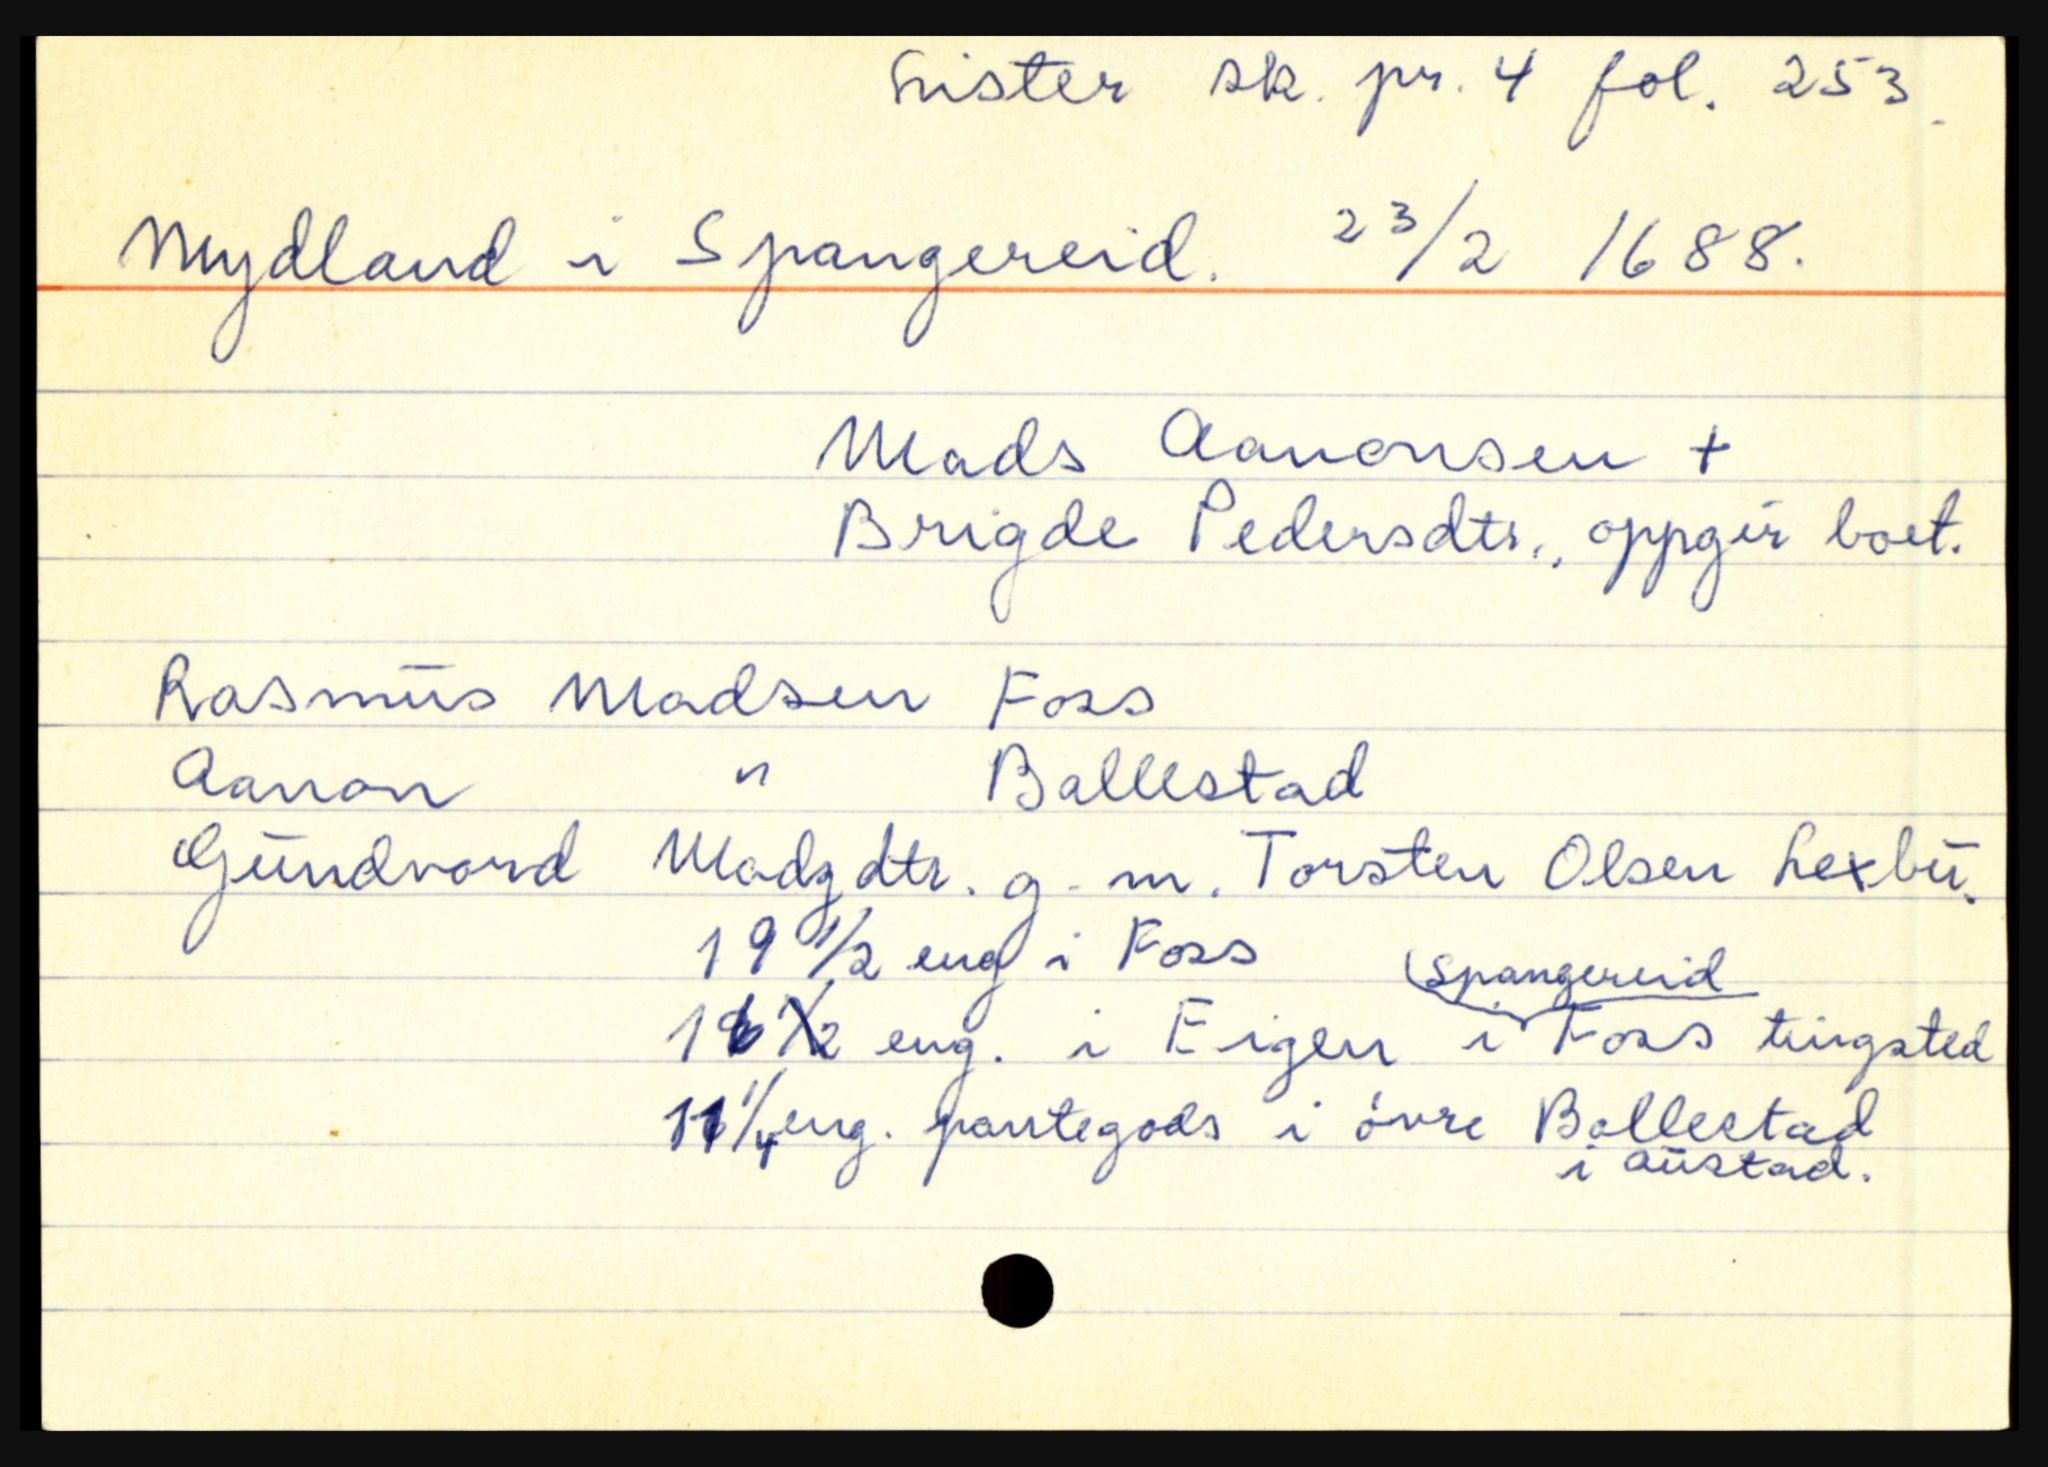 Lister sk. pr. 4 fol. 253.
Mydland i Spangereid. 23/2 1688.
Mads Aanonsen +
Brigde Pedersdtr., oppgir boet.
Rasmus Madsen Foss
Aanon " Ballestad
Gundvord Madsdtr. g. m. Torsten Olsen Lexbu.
19 1/2 eng i Foss
Spangereid
16 eng. i Eigen i Foss tingsted
11 1/4 eng. pantegods i övre Ballestad
i Austad.